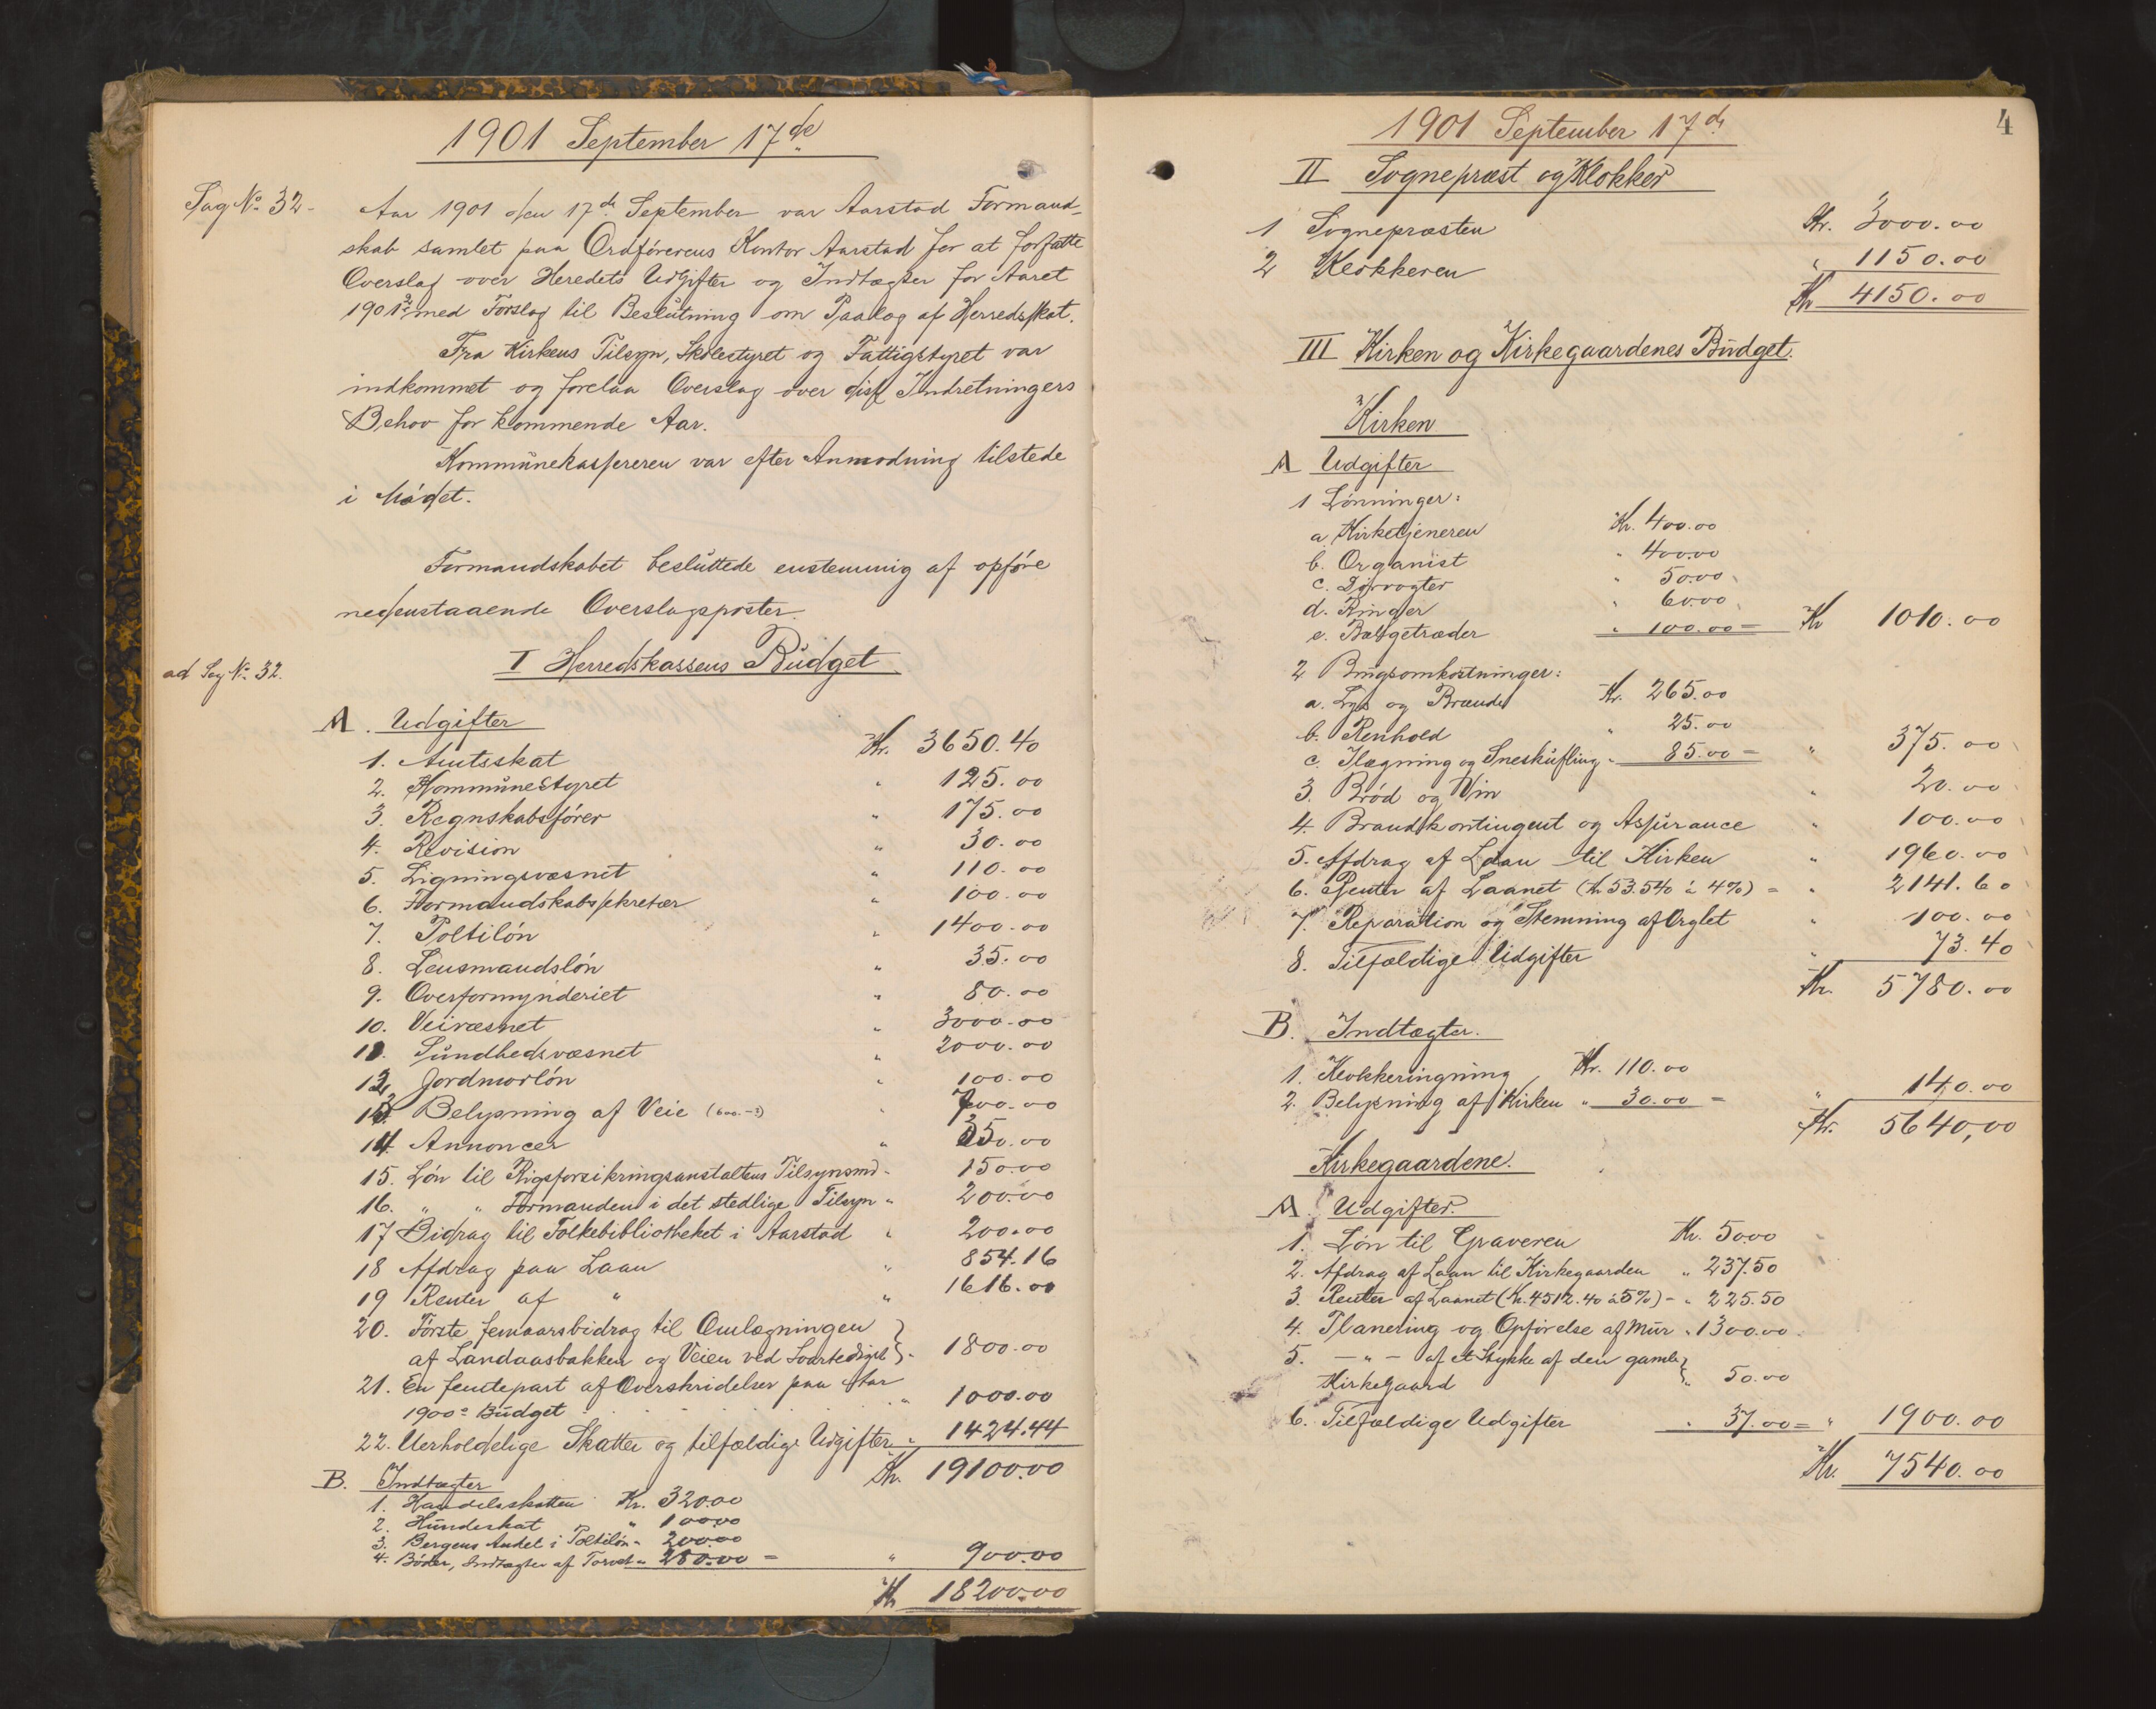 1901 September 17de
Sag No 32 -
Aar 1901 den 17de September var Aarstad Formand-
skab samlet paa Ordførerens Kontor Aarstad for at forfatte
Overslag over Heredets Udgifter og Indtægter for Aaret
1902 med Forslag til Beslutning om Paalæg af Herredsskat.
Fra Kirkens Tilsyn, Skolestyret og Fattigstyret var
indkommet og forelaa Overslag over disse Indretningers
Behov for kommende Aar.
Kommunekassereren var efter Anmodning tilstede
i Mødet.
Formandskabet besluttede enstemmig af opføre
nedenstaaende Overslagsposter.
ad Sag No 32.
I Herredskassens Budget
A. Udgifter
1. Amtsskat Kr. 3650.40
2. Kommunestyret " 125.00
3. Regnskabsfører " 175.00
4. Revision " 30.00
5. Ligningsvæsnet " 110.00
6. Formandskabssekretær " 100.00
7. Politiløn " 1400.00
8. Lensmandsløn " 35.00
9. Overformynderiet " 80.00
10. Veivæsnet " 3000.00
11. Sundhedsvæsnet " 2000.00
12. Jordmorløn " 100.00
13. Belysning af Veie " 700.00
14. Annoncer " 350.00
15. Løn til Rigsforsikringsanstaltens Tilsynsmd " 150.00
16. " " Formanden i det stedlige Tilsyn " 200.00
17 Bidrag til Folkebibliotheket i Aarstad " 200.00
18 Afdrag paa Laan " 854.16
19 Renter af " " 1616.00
20. Første femaarsbidrag til Omlægningen
af Landaasbakken og Veien ved Svartediget " 1800.00
21. En femtepart af Overskridelser paa Aar
1900s Budget " 1000.00
22. Uerholdelige Skatter og tilfældige Udgifter " 1424.44
Kr. 19100.00
B. Indtægter
1. Handelsskatten Kr. 320.00
2. Hundeskat " 100.00
3. Bergens Andel i Politiløn " 200.00
4. Bøder, Indtægter af Torvet " 280.00 = " 900.00
Kr 18200.00
4
1901 September 17de
II Sognepræst og Klokker
1 Sognepræsten Kr. 3000.00
2 Klokkeren " 1150.00
Kr 4150.00
III Kirken og Kirkegaardenes Budget.
Kirken
A Udgifter
1 Lønninger:
a. Kirketjeneren Kr. 400.00
b. Organist " 400.00
c. Dørvogter " 50.00
d. Ringer " 60.00
e. Bælgetræder " 100.00 = Kr 1010.00
2 Brugsomkostninger:
a. Lys og Brænde Kr. 265.00
b. Renhold " 25.00
c. Ilægning og Sneskufling " 85.00 = " 375.00
3. Brød og Vin " 20.00
4. Brandkontingent og Assurance " 100.00
5. Afdrag af Laan til Kirken " 1960.00
6. Renter af Laanet (Kr 53.540 à 4%) = " 2141.60
7. Reparation og Stemning af Orglet " 100.00
8. Tilfældige Udgifter " 73.40
Kr. 5780.00
B. Indtægter.
1. Klokkeringning Kr. 110.00
2. Belysning af Kirken " 30.00 = " 140.00
Kr. 5640,00
Kirkegaardene.
A. Udgifter.
1. Løn til Graveren Kr. 50.00
2. Afdrag af Laan til Kirkegaarden " 237.50
3. Renter af Laanet (Kr. 4512.40 à 5%) - " 225.50
4. Planering og Opførelse af Mur " 1300.00
5. - " - af et Stykke af den gamle
Kirkegaard " 50.00
6. Tilfældige Udgifter " 37.00 = " 1900.00
Kr. 7540.00